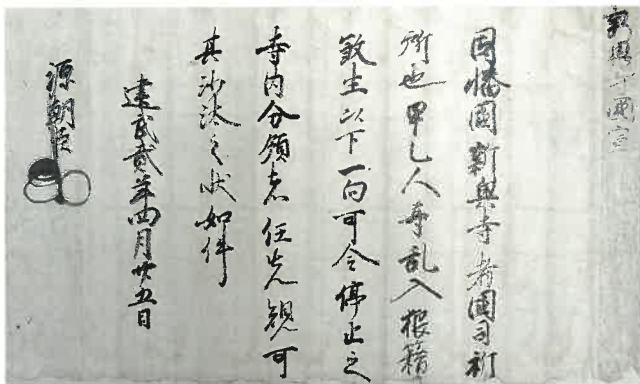 新興寺国宣
因幡國新興寺者國司祈
所也甲乙人等乱入狼藉
敏生以下一向可令停止之
寺内分領者任先規可
其沙汰之状如件
建武貳年四月廿五日
源朝臣